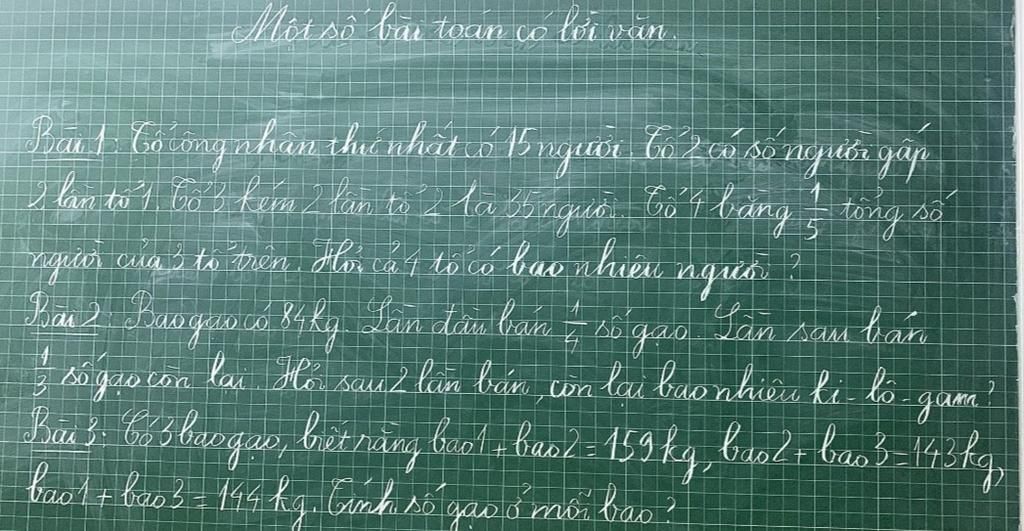 Một số bài toán có lời văn.
Bài 1: Tổ công nhân thứ nhất có 15 người. Tổ 2 có số người gấp
2 lần tổ 1. Tổ 3 kém 2 lần tổ 2 là 35 người. Tổ 4 bằng 1/5 tổng số
người của 3 tổ trên. Hỏi cả 4 tổ có bao nhiêu người?
Bài 2: Bao gạo có 84kg. Lần đầu bán 1/4 số gạo. Lần sau bán
1/3 số gạo còn lại. Hỏi sau 2 lần bán, còn lại bao nhiêu ki-lô-gam?
Bài 3: Có 3 bao gạo, biết rằng bao 1 + bao 2 = 159 kg, bao 2 + bao 3 = 143kg,
bao 1 + bao 3 = 144 kg. Tính số gạo ở mỗi bao?